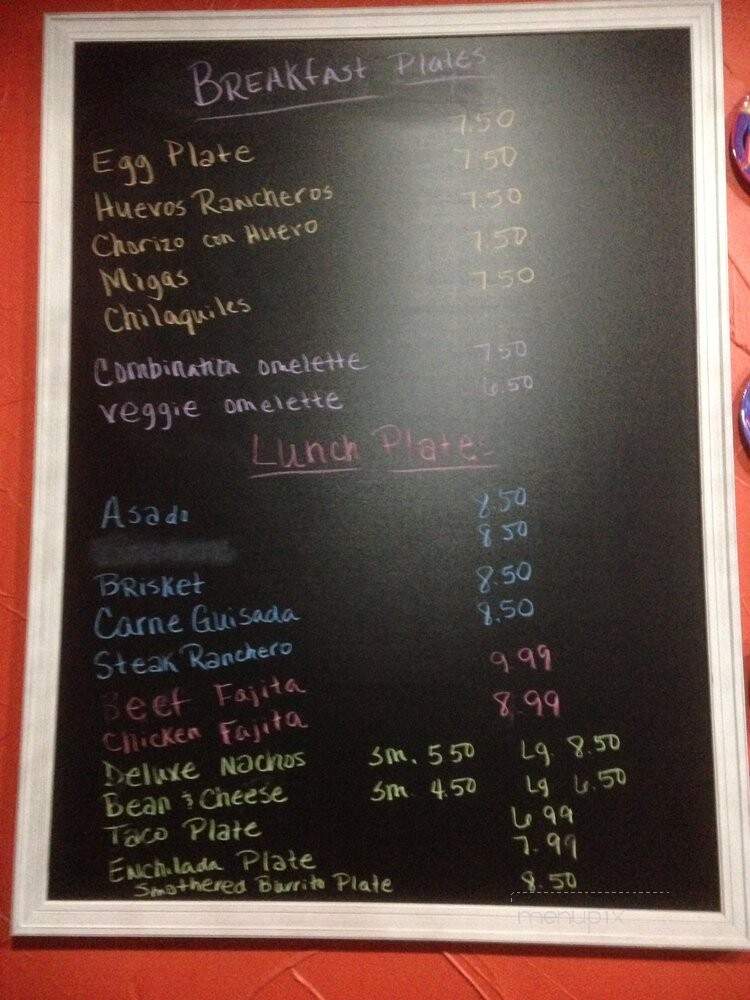 BREAKfast Plates
Egg Plate 7.50
Huevos Rancheros 7.50
Chorizo con Huevo 7.50
Migas 7.50
Chilaquiles 7.50
Combination omelette 7.50
veggie omelette 6.50
Lunch Plates
Asado 8.50
8.50
BRisket 8.50
Carne Guisada 8.50
Steak Ranchero
Beef Fajita 9.99
Chicken Fajita 8.99
Deluxe Nachos sm. 5.50 Lg. 8.50
Bean & Cheese sm 4.50 Lg 6.50
Taco Plate 6.99
Enchilada Plate 7.99
Smothered Burrito Plate 8.50
menupix